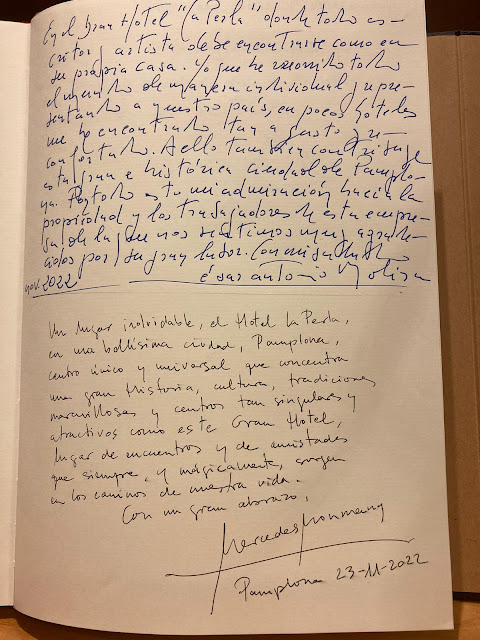 En el Gran Hotel "La Perla" donde todo es-
critor y artista debe encontrarse como en
su propia casa. Yo que he recorrido todo
el mundo de manera individual y repre-
sentando a nuestro país, en pocos hoteles
me he encontrado tan a gusto y re-
confortado. A ello también contribuye
esta gran e histórica ciudad de Pamplo-
na. Por todo esto mi admiración hacia la
propiedad y los trabajadores de esta empre-
sa de la que nos sentimos muy agrade-
cidos por su gran labor. Con mi
nov. 2022 César Antonio Molina
Un lugar inolvidable, el Hotel La Perla,
en una bellísima ciudad, Pamplona,
centro único y universal que concentra
una gran Historia, cultura, tradiciones
maravillosas y centros tan singulares y
atractivos como este Gran Hotel,
lugar de encuentros y de amistades
que siempre, y mágicamente, surgen
en los caminos de nuestra vida.
Con un gran abrazo,
Mercedes Monmany
Pamplona 23-11-2022